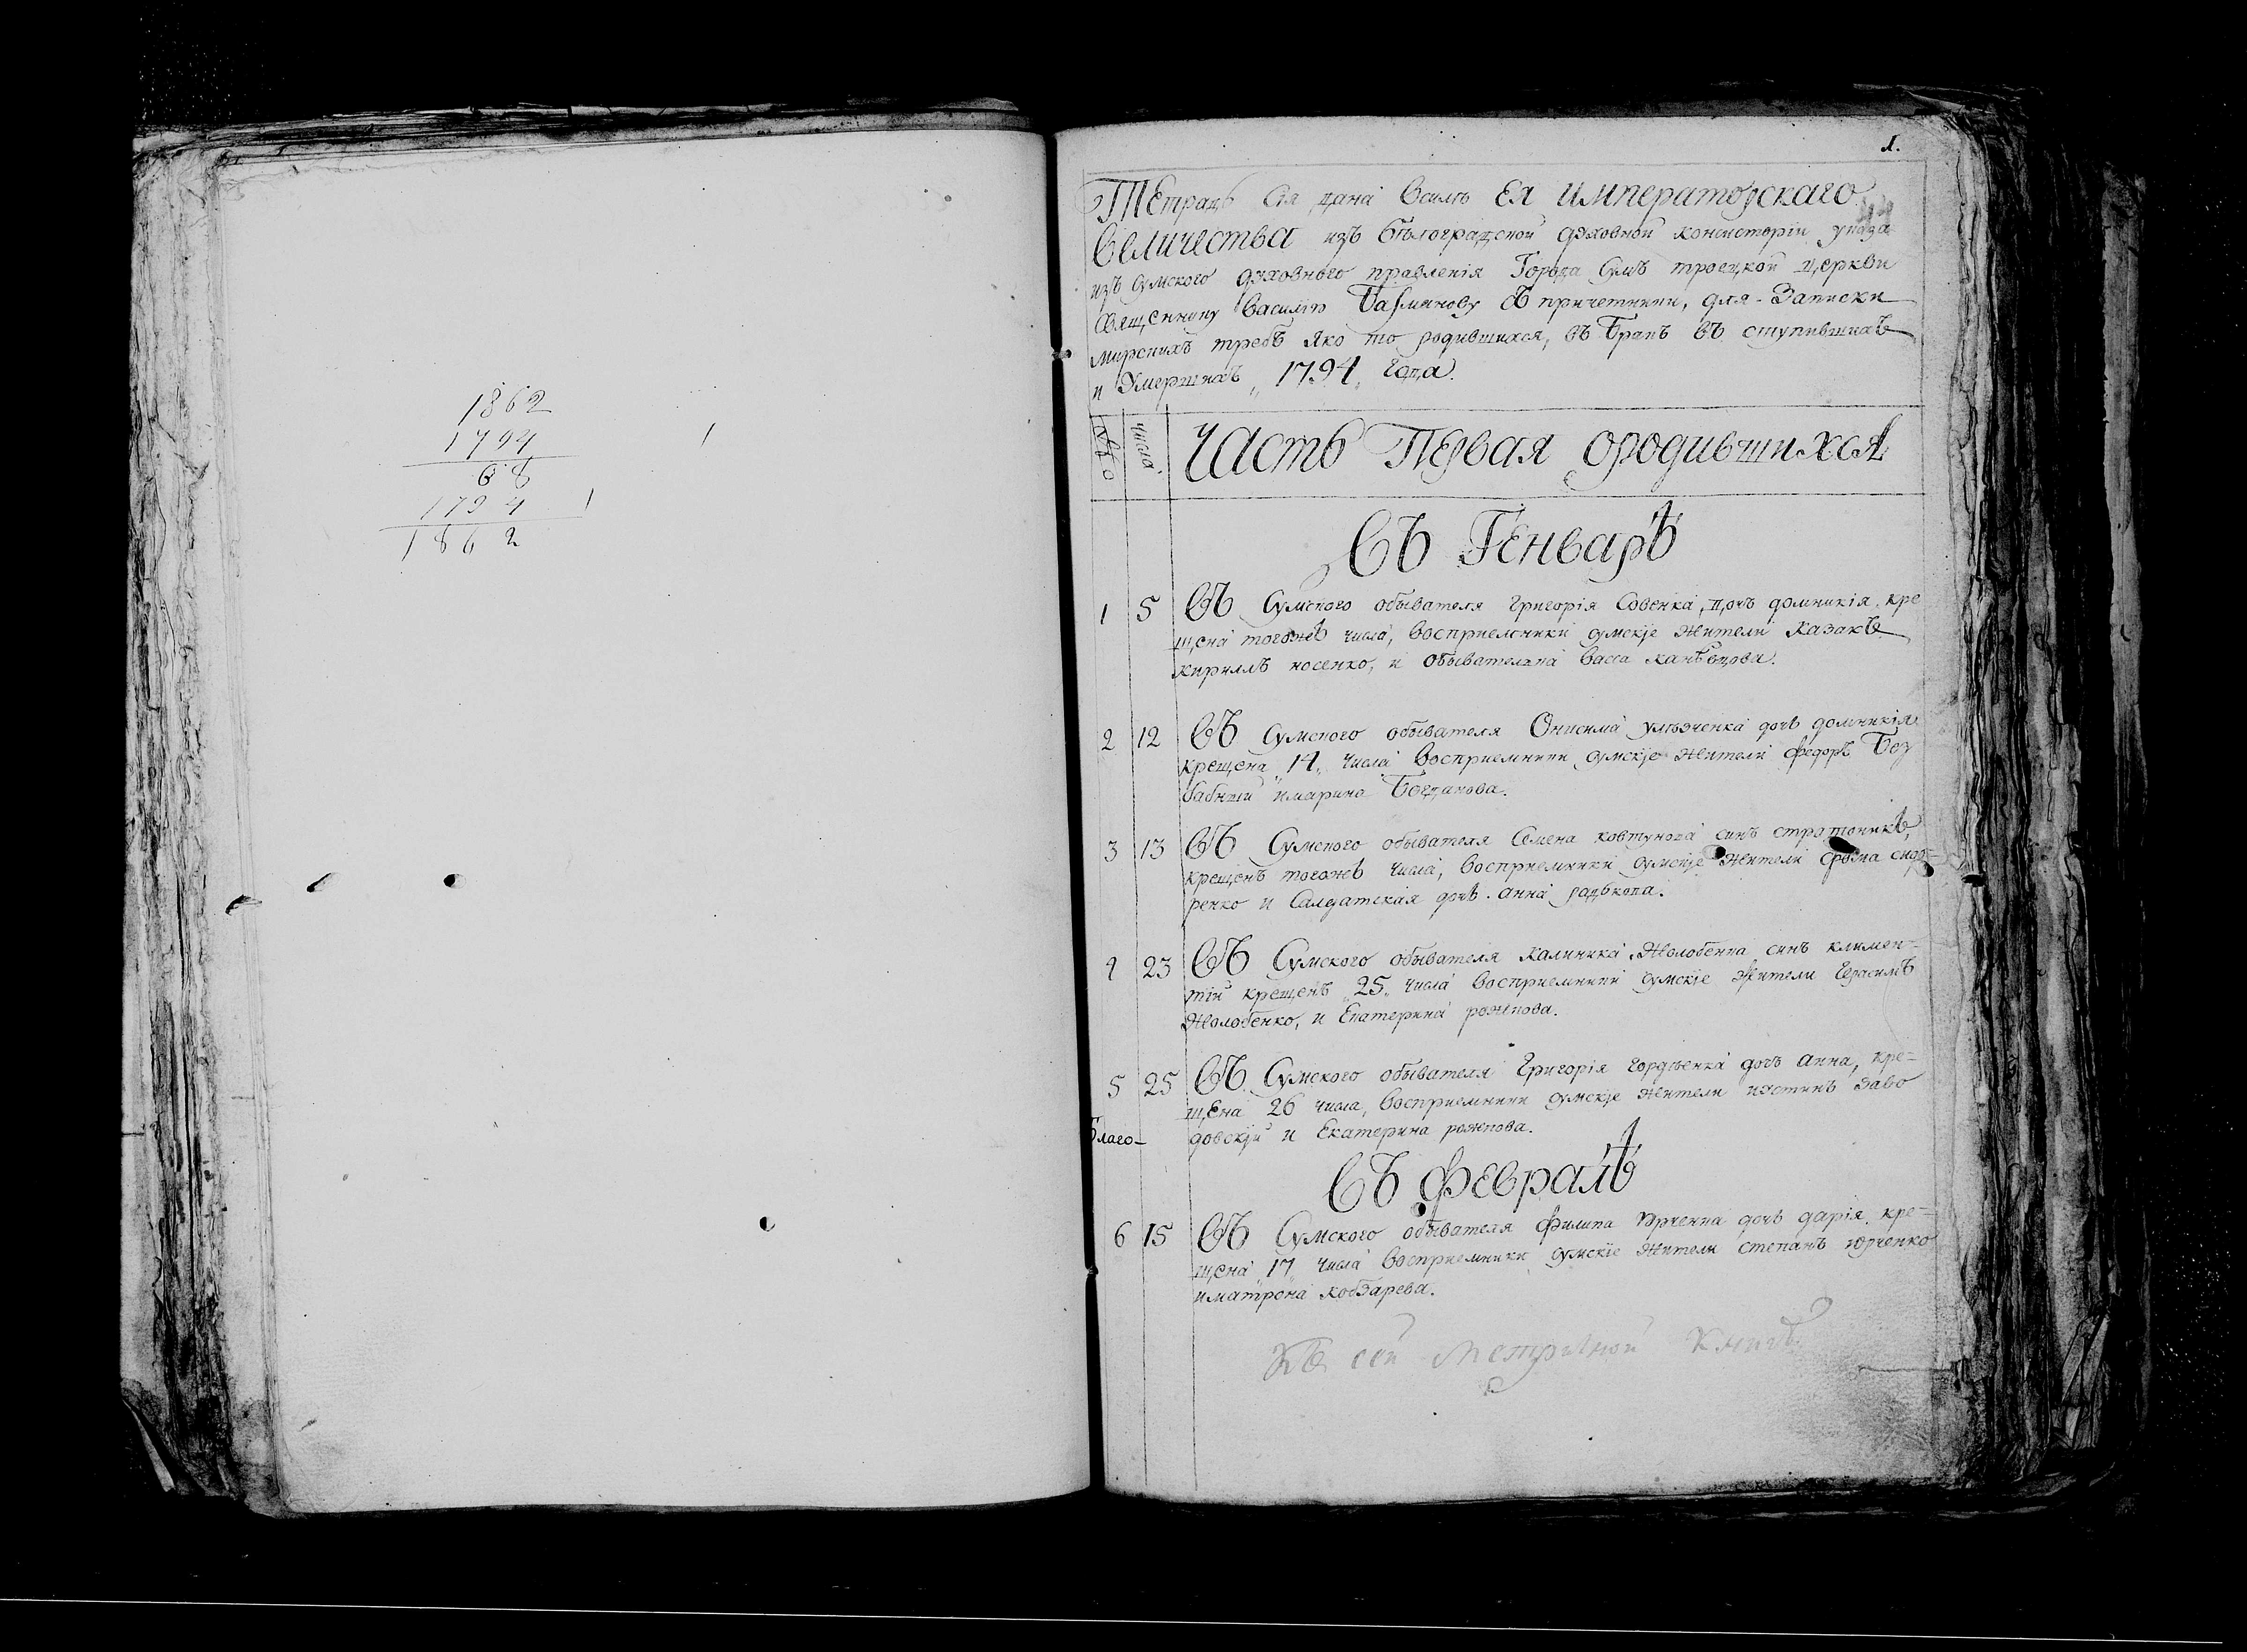 1862
1794 1
68
1794 1
1862
1.
44
Тетрадь сія дана всилѣ ЕЯ ИМПЕРАТОРСКАГО
ВЕЛИЧЕСТВА изъ бѣлоградской духовной консисторіи указа
изъ сумского духовного правленія Города Сумъ троецкой церкви
священнику василію съ причетники, для Записки
мирскихъ требъ яко то родившихся, въ бракъ въ ступившихъ
и Умершихъ „1794„ Года.
число
ЧАСТЬ ПЕРВАЯ ородившихся
Въ Генварѣ
1 5 Въ Сумского обывателя Григорія Совенка, дочъ домникія. кре
щена тогожъ числа, восприемники сумскіе жители казакъ
кириллъ носенко, и обывателка васса
2 12 Въ Сумского обывателя Онисима дочъ домникія
крещена „14„ числа восприемники сумскіе жители федоръ Без
имарина Богданова.
3 13 Въ Сумского обывателя Семена ковтунова синъ стратоникъ,
крещенъ тогожъ числа, восприемники сумскіе жители
ренко и Салдатская дочъ. анна радкова.
4 23 Въ Сумского обывателя калиника Жолобенка синъ климен-
тій крещенъ „25„ числа восприемники сумскіе жители Герасимъ
Жолобенко, и Екатерина рожкова.
5 25 Въ Сумского обывателя Григорія гордѣенка дочъ анна, кре-
щена 26 числа, восприемники сумскіе жители иустинъ заво
Благо- довскій и Екатерина рожкова.
Въ Февралѣ
6 15 Въ Сумского обывателя филипа юрченка дочъ дарія. кре-
щена „17„ числа восприемники сумскіе жители степанъ юрченко
иматрона кобзарева.
Къ сей метричной книгѣ